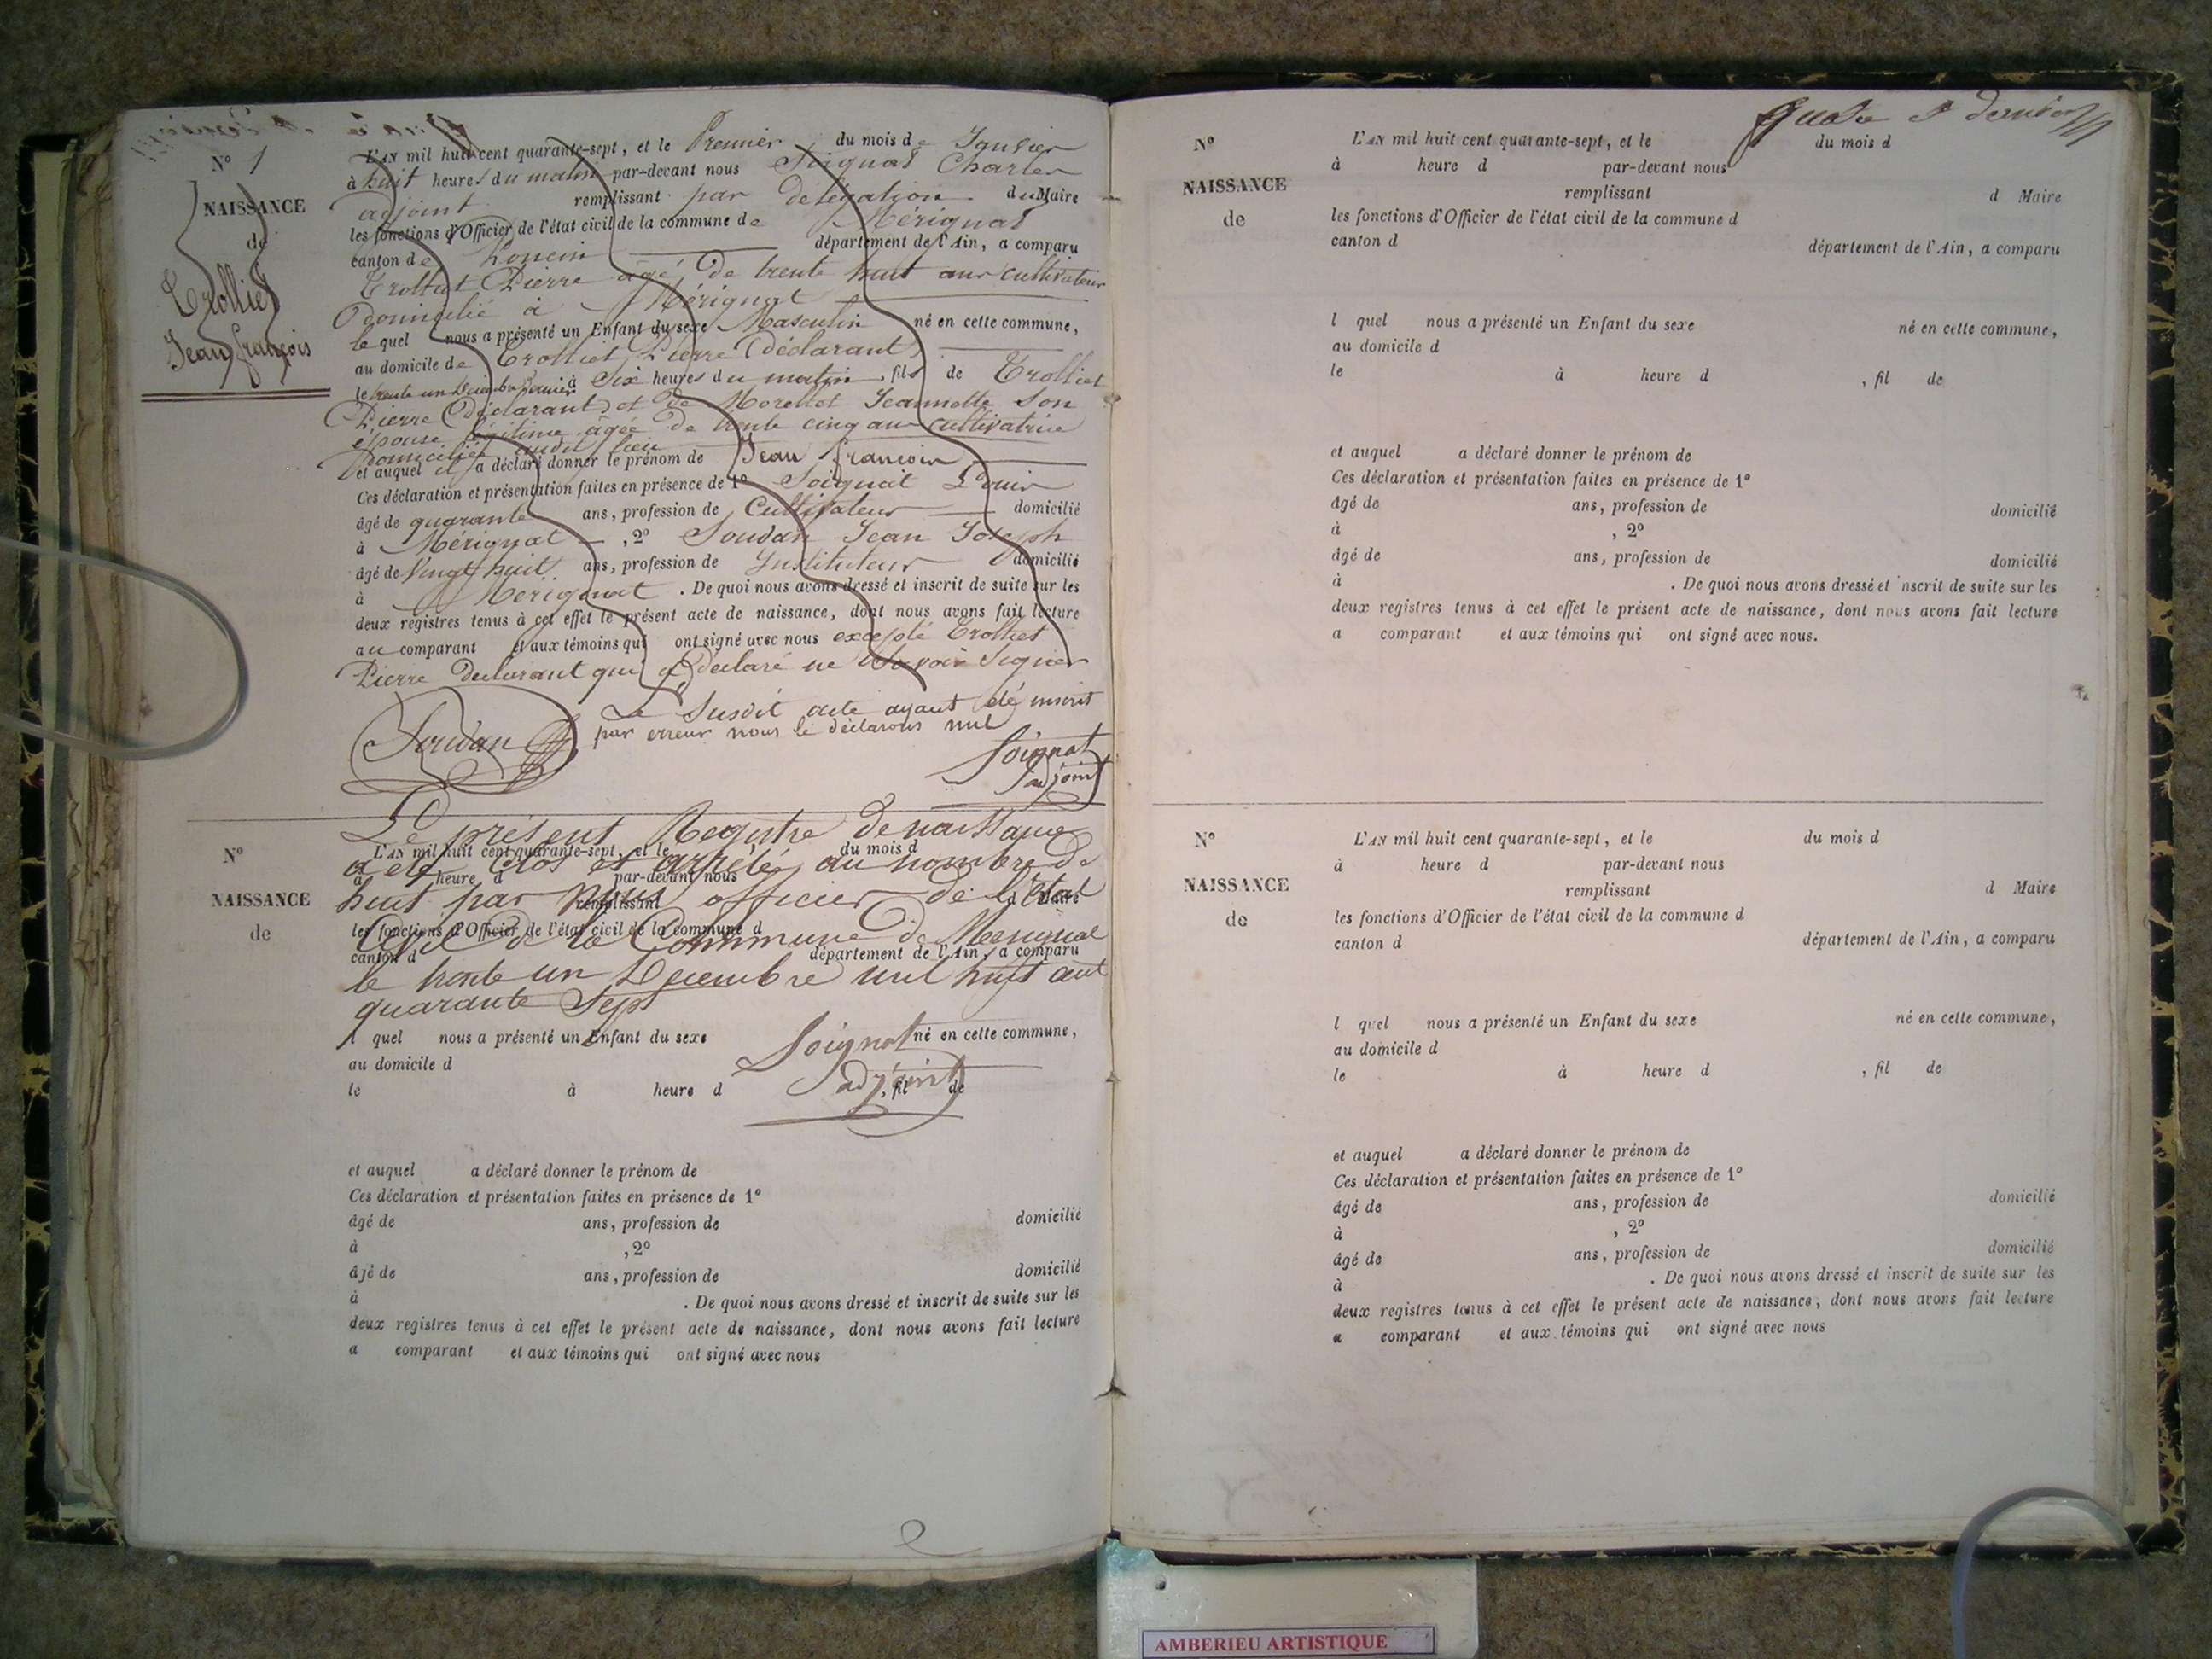 N° 1
NAISSANCE
de
Trolliet
Jean françois
L'AN mil huit cent quarante-sept, et le Premier du mois de Janvier
à huit heures du matin par-devant nous Soignat Charles
adjoint remplissant par délégation du Maire
les fonctions d'Officier de l'état civil de la commune de Mérignat
canton de Poncin département de l'Ain, a comparu
Trolliet Pierre âgé de trente huit ans cultivateur
domicilié à Mérignat
le quel nous a présenté un Enfant du sexe Masculin né en cette commune,
au domicile de Trolliet Pierre déclarant
le trente un Decembre dernier à Six heures du matin, fils de Trolliet
Pierre déclarant et de Jeannette Son
épouse légitime âgée de trente cinq ans cultivatrice
domiciliés audit lieu
et auquel il a déclaré donner le prénom de Jean françois
Ces déclaration et présentation faites en présence de 1° Soignat Louis
âgé de quarante ans, profession de Cultivateur domicilié
à Mérignat , 2° Soudan Jean Joseph
âgé de Vingt huit ans, profession de Instituteur domicilié
à Mérignat . De quoi nous avons dressé et inscrit de suite sur les
deux registres tenus à cet effet le présent acte de naissance, dont nous avons fait lecture
au comparant et aux témoins qui ont signé avec nous excepté Trolliet
Pierre declarant qui a déclaré ne Savoir Signer
Le Susdit acte ayant été inscrit
par erreur nous le déclarons nul
Soudan
Soignat
adjoint
N°
NAISSANCE
de
Le présent Registre de naissance
L'AN mil huit cent quarante-sept, et le du mois d
a été clos et arrêté au nombre de
à heure d par-devant nous
huit par nous officier de l'état
remplissant d Maire
les fonctions d'Officier de l'état civil de la commune d
Civil de la Commune de Merignat
canton d département de l'Ain, a comparu
le trente un Decembre mil huit cent
quarante Sept
l quel nous a présenté un Enfant du sexe né en cette commune,
Soignat
au domicile d
adjoint
le à heure d , fil de
et auquel a déclaré donner le prénom de
Ces déclaration et présentation faites en présence de 1°
âgé de ans, profession de domicilié
à , 2°
âgé de ans, profession de domicilié
à . De quoi nous avons dressé et inscrit de suite sur les
deux registres tenus à cet effet le présent acte de naissance, dont nous avons fait lecture
a comparant et aux témoins qui ont signé avec nous
N°
NAISSANCE
de
L'AN mil huit cent quarante-sept, et le du mois d
à heure d par-devant nous
remplissant d Maire
les fonctions d'Officier de l'état civil de la commune d
canton d département de l'Ain, a comparu
l quel nous a présenté un Enfant du sexe né en cette commune,
au domicile d
le à heure d , fil de
et auquel a déclaré donner le prénom de
Ces déclaration et présentation faites en présence de 1°
âgé de ans, profession de domicilié
à , 2°
âgé de ans, profession de domicilié
à . De quoi nous avons dressé et inscrit de suite sur les
deux registres tenus à cet effet le présent acte de naissance, dont nous avons fait lecture
a comparant et aux témoins qui ont signé avec nous.
N°
NAISSANCE
de
L'AN mil huit cent quarante-sept, et le du mois d
à heure d par-devant nous
remplissant d Maire
les fonctions d'Officier de l'état civil de la commune d
canton d département de l'Ain, a comparu
l quel nous a présenté un Enfant du sexe né en cette commune,
au domicile d
le à heure d , fil de
et auquel a déclaré donner le prénom de
Ces déclaration et présentation faites en présence de 1°
âgé de ans, profession de domicilié
à , 2°
âgé de ans, profession de domicilié
à . De quoi nous avons dressé et inscrit de suite sur les
deux registres tenus à cet effet le présent acte de naissance, dont nous avons fait lecture
a comparant et aux témoins qui ont signé avec nous
AMBERIEU ARTISTIQUE